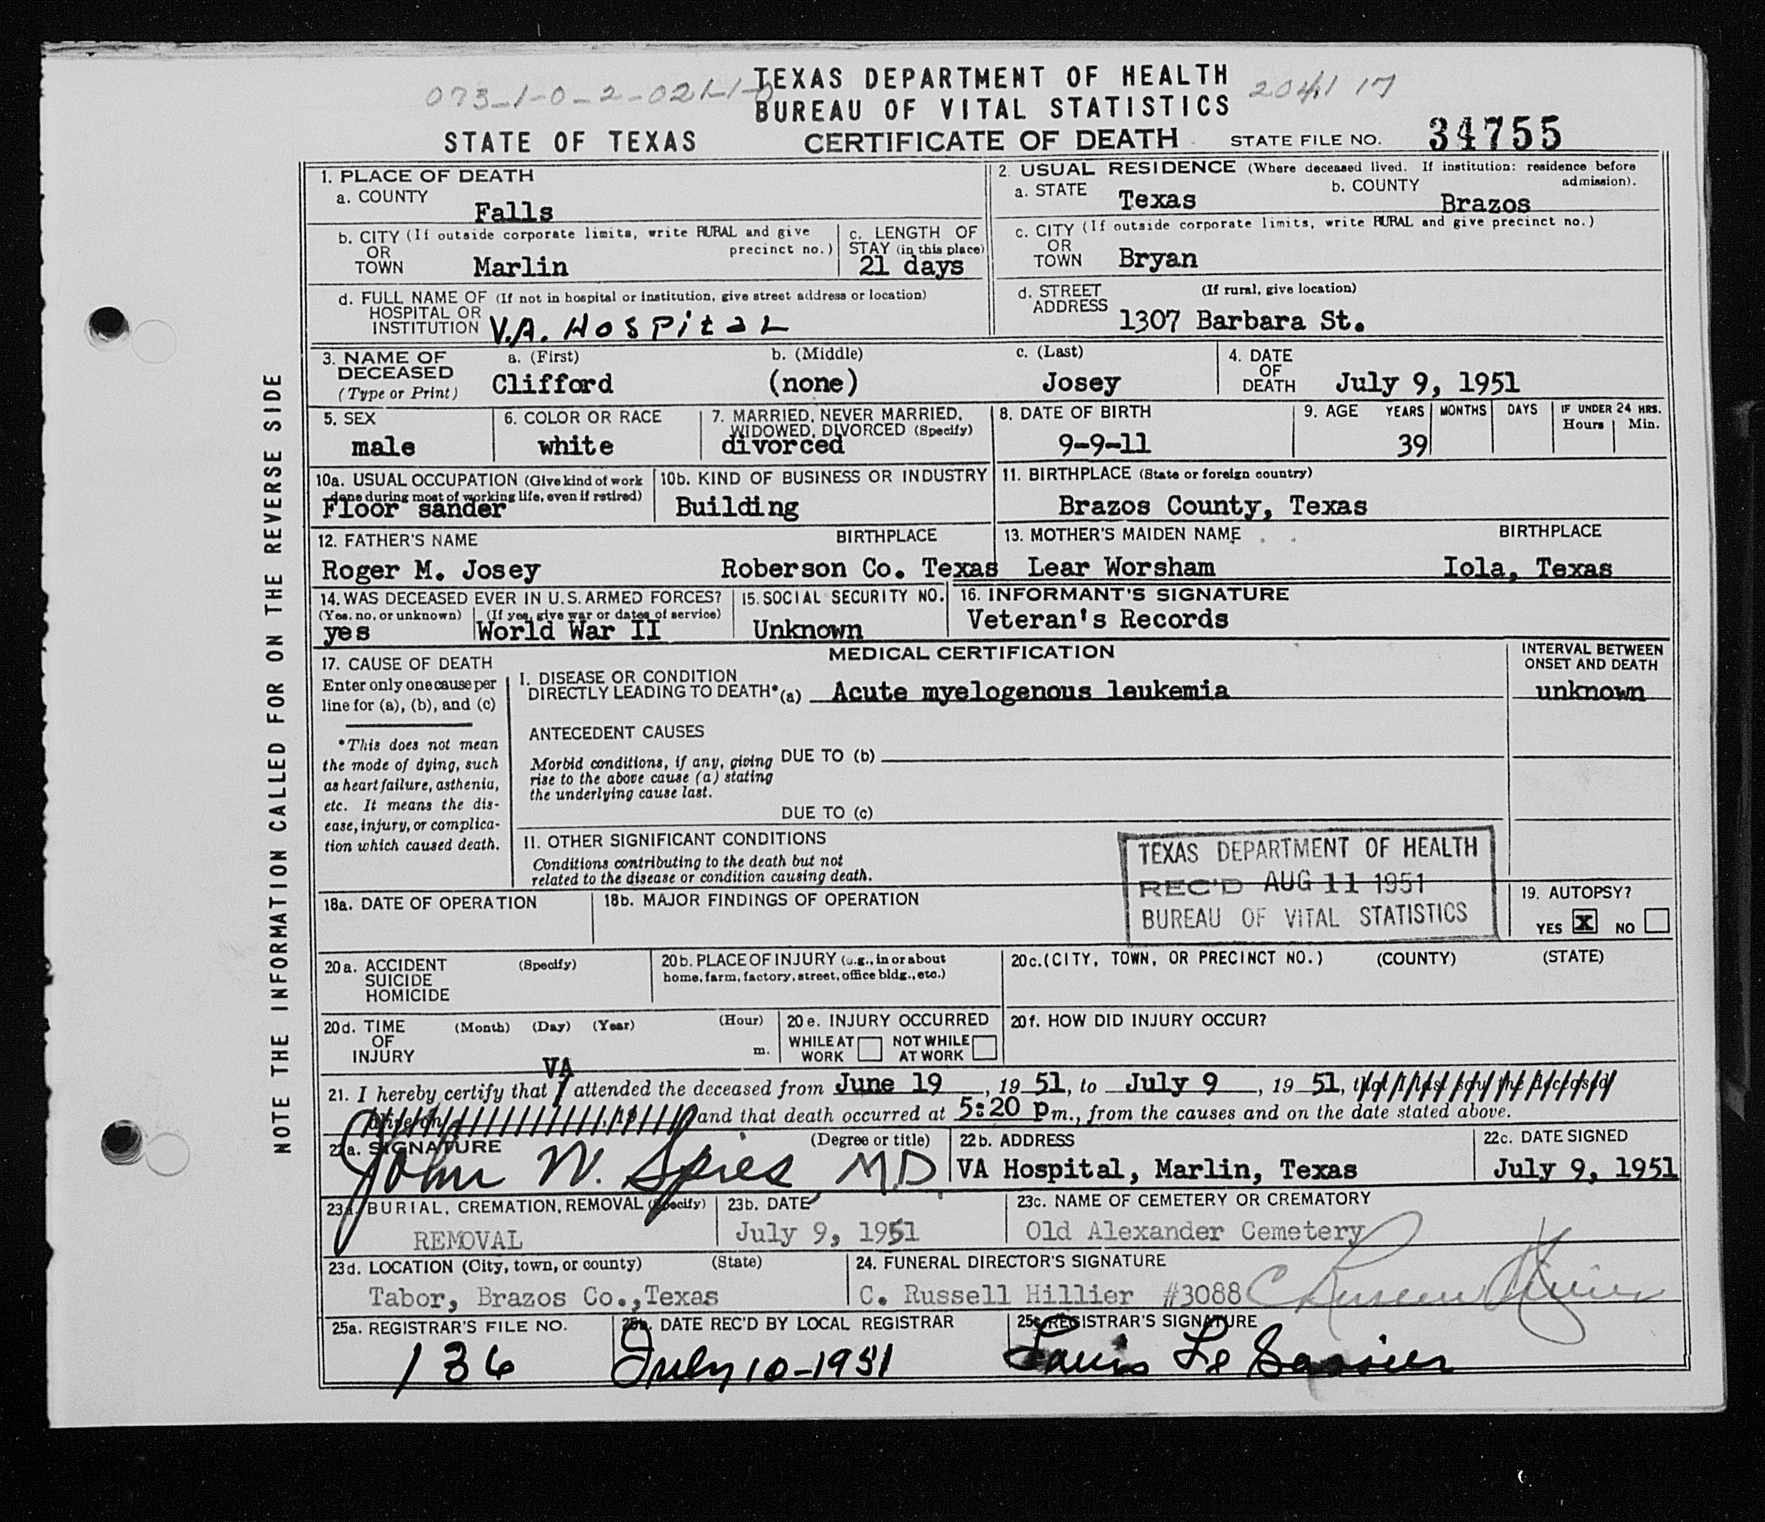 073-1-0-2-021-1-0
TEXAS DEPARTMENT OF HEALTH
BUREAU OF VITAL STATISTICS
STATE OF TEXAS CERTIFICATE OF DEATH STATE FILE NO. 34755
NOTE THE INFORMATION CALLED FOR ON THE REVERSE SIDE
1. PLACE OF DEATH
a. COUNTY
Falls
2. USUAL RESIDENCE (Where deceased lived. If institution: residence before admission).
a. STATE Texas b. COUNTY Brazos
b. CITY (If outside corporate limits, write RURAL and give precinct no.)
OR
TOWN Marlin
c. LENGTH OF
STAY (in this place)
21 days
c. CITY (If outside corporate limits, write RURAL and give precinct no.)
OR
TOWN Bryan
d. FULL NAME OF (If not in hospital or institution, give street address or location)
HOSPITAL OR
INSTITUTION V.A. Hospital
d. STREET (If rural, give location)
ADDRESS
1307 Barbara St.
3. NAME OF DECEASED (Type or Print)
a. (First) b. (Middle) c. (Last)
Clifford (none) Josey
4. DATE OF DEATH July 9, 1951
5. SEX
male
6. COLOR OR RACE
white
7. MARRIED, NEVER MARRIED,
WIDOWED, DIVORCED (Specify)
divorced
8. DATE OF BIRTH
9-9-11
9. AGE YEARS MONTHS DAYS IF UNDER 24 HRS.
Hours Min.
39
10a. USUAL OCCUPATION (Give kind of work
done during most of working life, even if retired)
Floor sander
10b. KIND OF BUSINESS OR INDUSTRY
Building
11. BIRTHPLACE (State or foreign country)
Brazos County, Texas
12. FATHER'S NAME BIRTHPLACE
Roger M. Josey Roberson Co. Texas
13. MOTHER'S MAIDEN NAME BIRTHPLACE
Lear Worsham Iola, Texas
14. WAS DECEASED EVER IN U.S. ARMED FORCES?
(Yes, no, or unknown) (If yes, give war or dates of service)
yes World War II
15. SOCIAL SECURITY NO.
Unknown
16. INFORMANT'S SIGNATURE
Veteran's Records
MEDICAL CERTIFICATION
17. CAUSE OF DEATH
Enter only one cause per
line for (a), (b), and (c)
*This does not mean
the mode of dying, such
as heart failure, asthenia,
etc. It means the dis-
ease, injury, or complica-
tion which caused death.
I. DISEASE OR CONDITION
DIRECTLY LEADING TO DEATH* (a) Acute myelogenous leukemia
INTERVAL BETWEEN
ONSET AND DEATH
unknown
ANTECEDENT CAUSES
Morbid conditions, if any, giving
rise to the above cause (a) stating
the underlying cause last.
DUE TO (b)
DUE TO (c)
II. OTHER SIGNIFICANT CONDITIONS
Conditions contributing to the death but not
related to the disease or condition causing death.
TEXAS DEPARTMENT OF HEALTH
REC'D AUG 11 1951
BUREAU OF VITAL STATISTICS
18a. DATE OF OPERATION
18b. MAJOR FINDINGS OF OPERATION
19. AUTOPSY?
YES X NO
20a. ACCIDENT (Specify)
SUICIDE
HOMICIDE
20b. PLACE OF INJURY (e.g., in or about
home, farm, factory, street, office bldg., etc.)
20c. (CITY, TOWN, OR PRECINCT NO.) (COUNTY) (STATE)
20d. TIME (Month) (Day) (Year) (Hour)
OF
INJURY m.
20e. INJURY OCCURRED
WHILE AT WORK NOT WHILE AT WORK
20f. HOW DID INJURY OCCUR?
VA
21. I hereby certify that I attended the deceased from June 19, 1951, to July 9, 1951, that I last saw the deceased
alive on 19 and that death occurred at 5:20 Pm., from the causes and on the date stated above.
22a. SIGNATURE (Degree or title)
John W. Spies MD
22b. ADDRESS
VA Hospital, Marlin, Texas
22c. DATE SIGNED
July 9, 1951
23a. BURIAL, CREMATION, REMOVAL (Specify)
REMOVAL
23b. DATE
July 9, 1951
23c. NAME OF CEMETERY OR CREMATORY
Old Alexander Cemetery
23d. LOCATION (City, town, or county) (State)
Tabor, Brazos Co., Texas
24. FUNERAL DIRECTOR'S SIGNATURE
C. Russell Hillier #3088 C Russell Hillier
25a. REGISTRAR'S FILE NO.
136
25b. DATE REC'D BY LOCAL REGISTRAR
July 10-1951
25c. REGISTRAR'S SIGNATURE